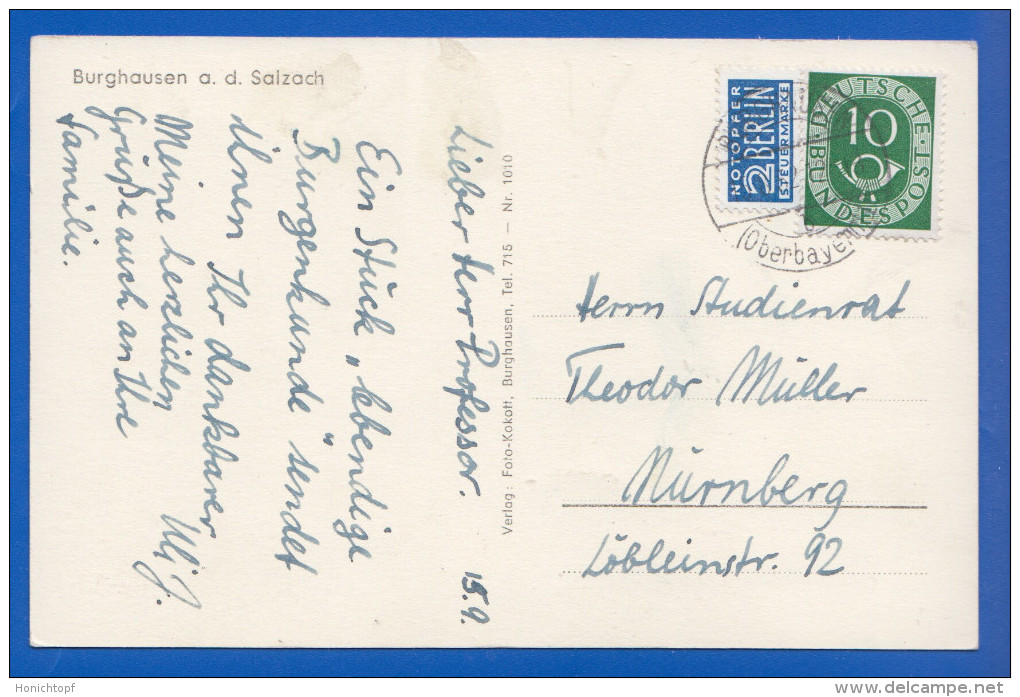 Burghausen a. d. Salzach
Lieber Herr Professor. 15.9.
Ein Stück „lebendige
Burgenkunde" sendet
Ihnen Ihr dankbarer
Uli J.
Meine herzlichen
Grüße auch an Ihre
Familie.
Verlag: Foto-Kokott, Burghausen, Tel. 715 — Nr. 1010
NOTOPFER
2 BERLIN
STEUERMARKE
DEUTSCHE
BUNDESPOST
10
(Oberbayern)
Herrn Studienrat
Theodor Müller
Nürnberg
Löbleinstr. 92
Honichtopf
delcampe.net